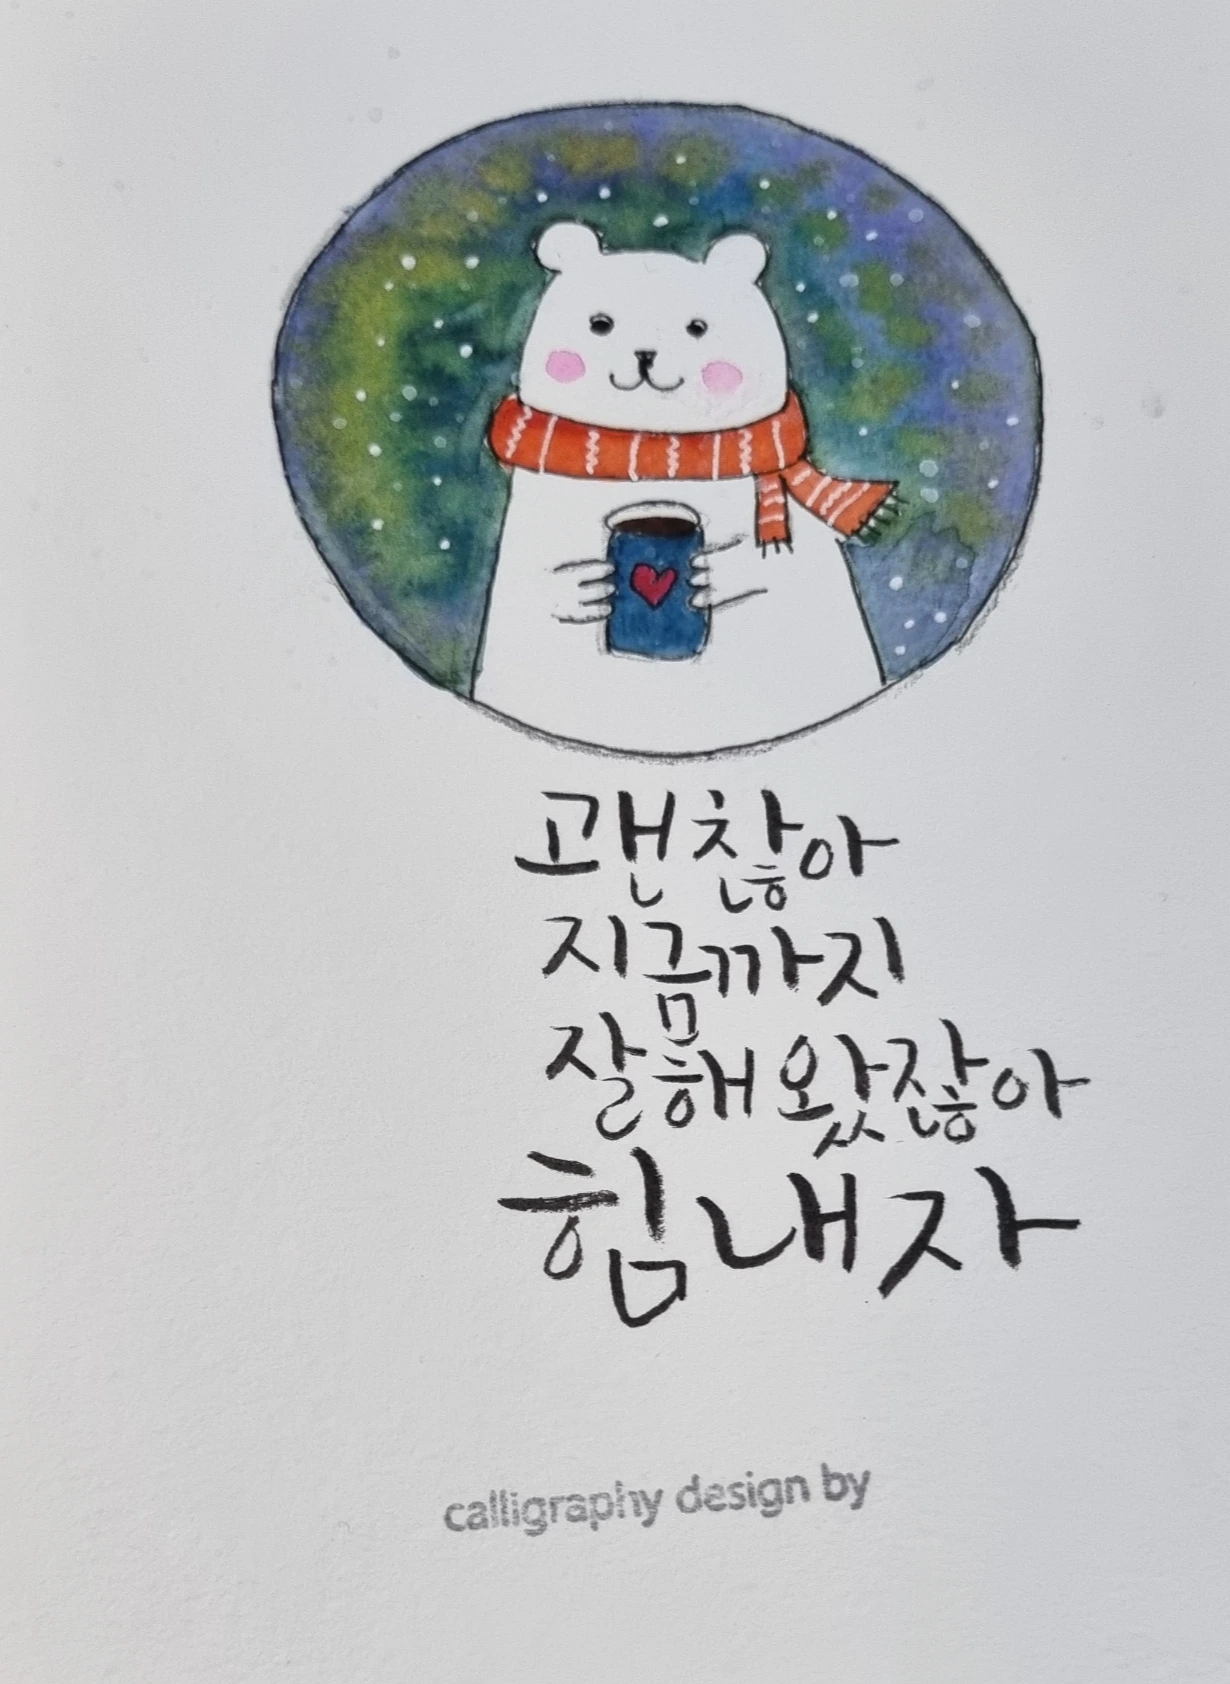 괜찮아
지금까지
잘해왔잖아
힘내자
calligraphy design by